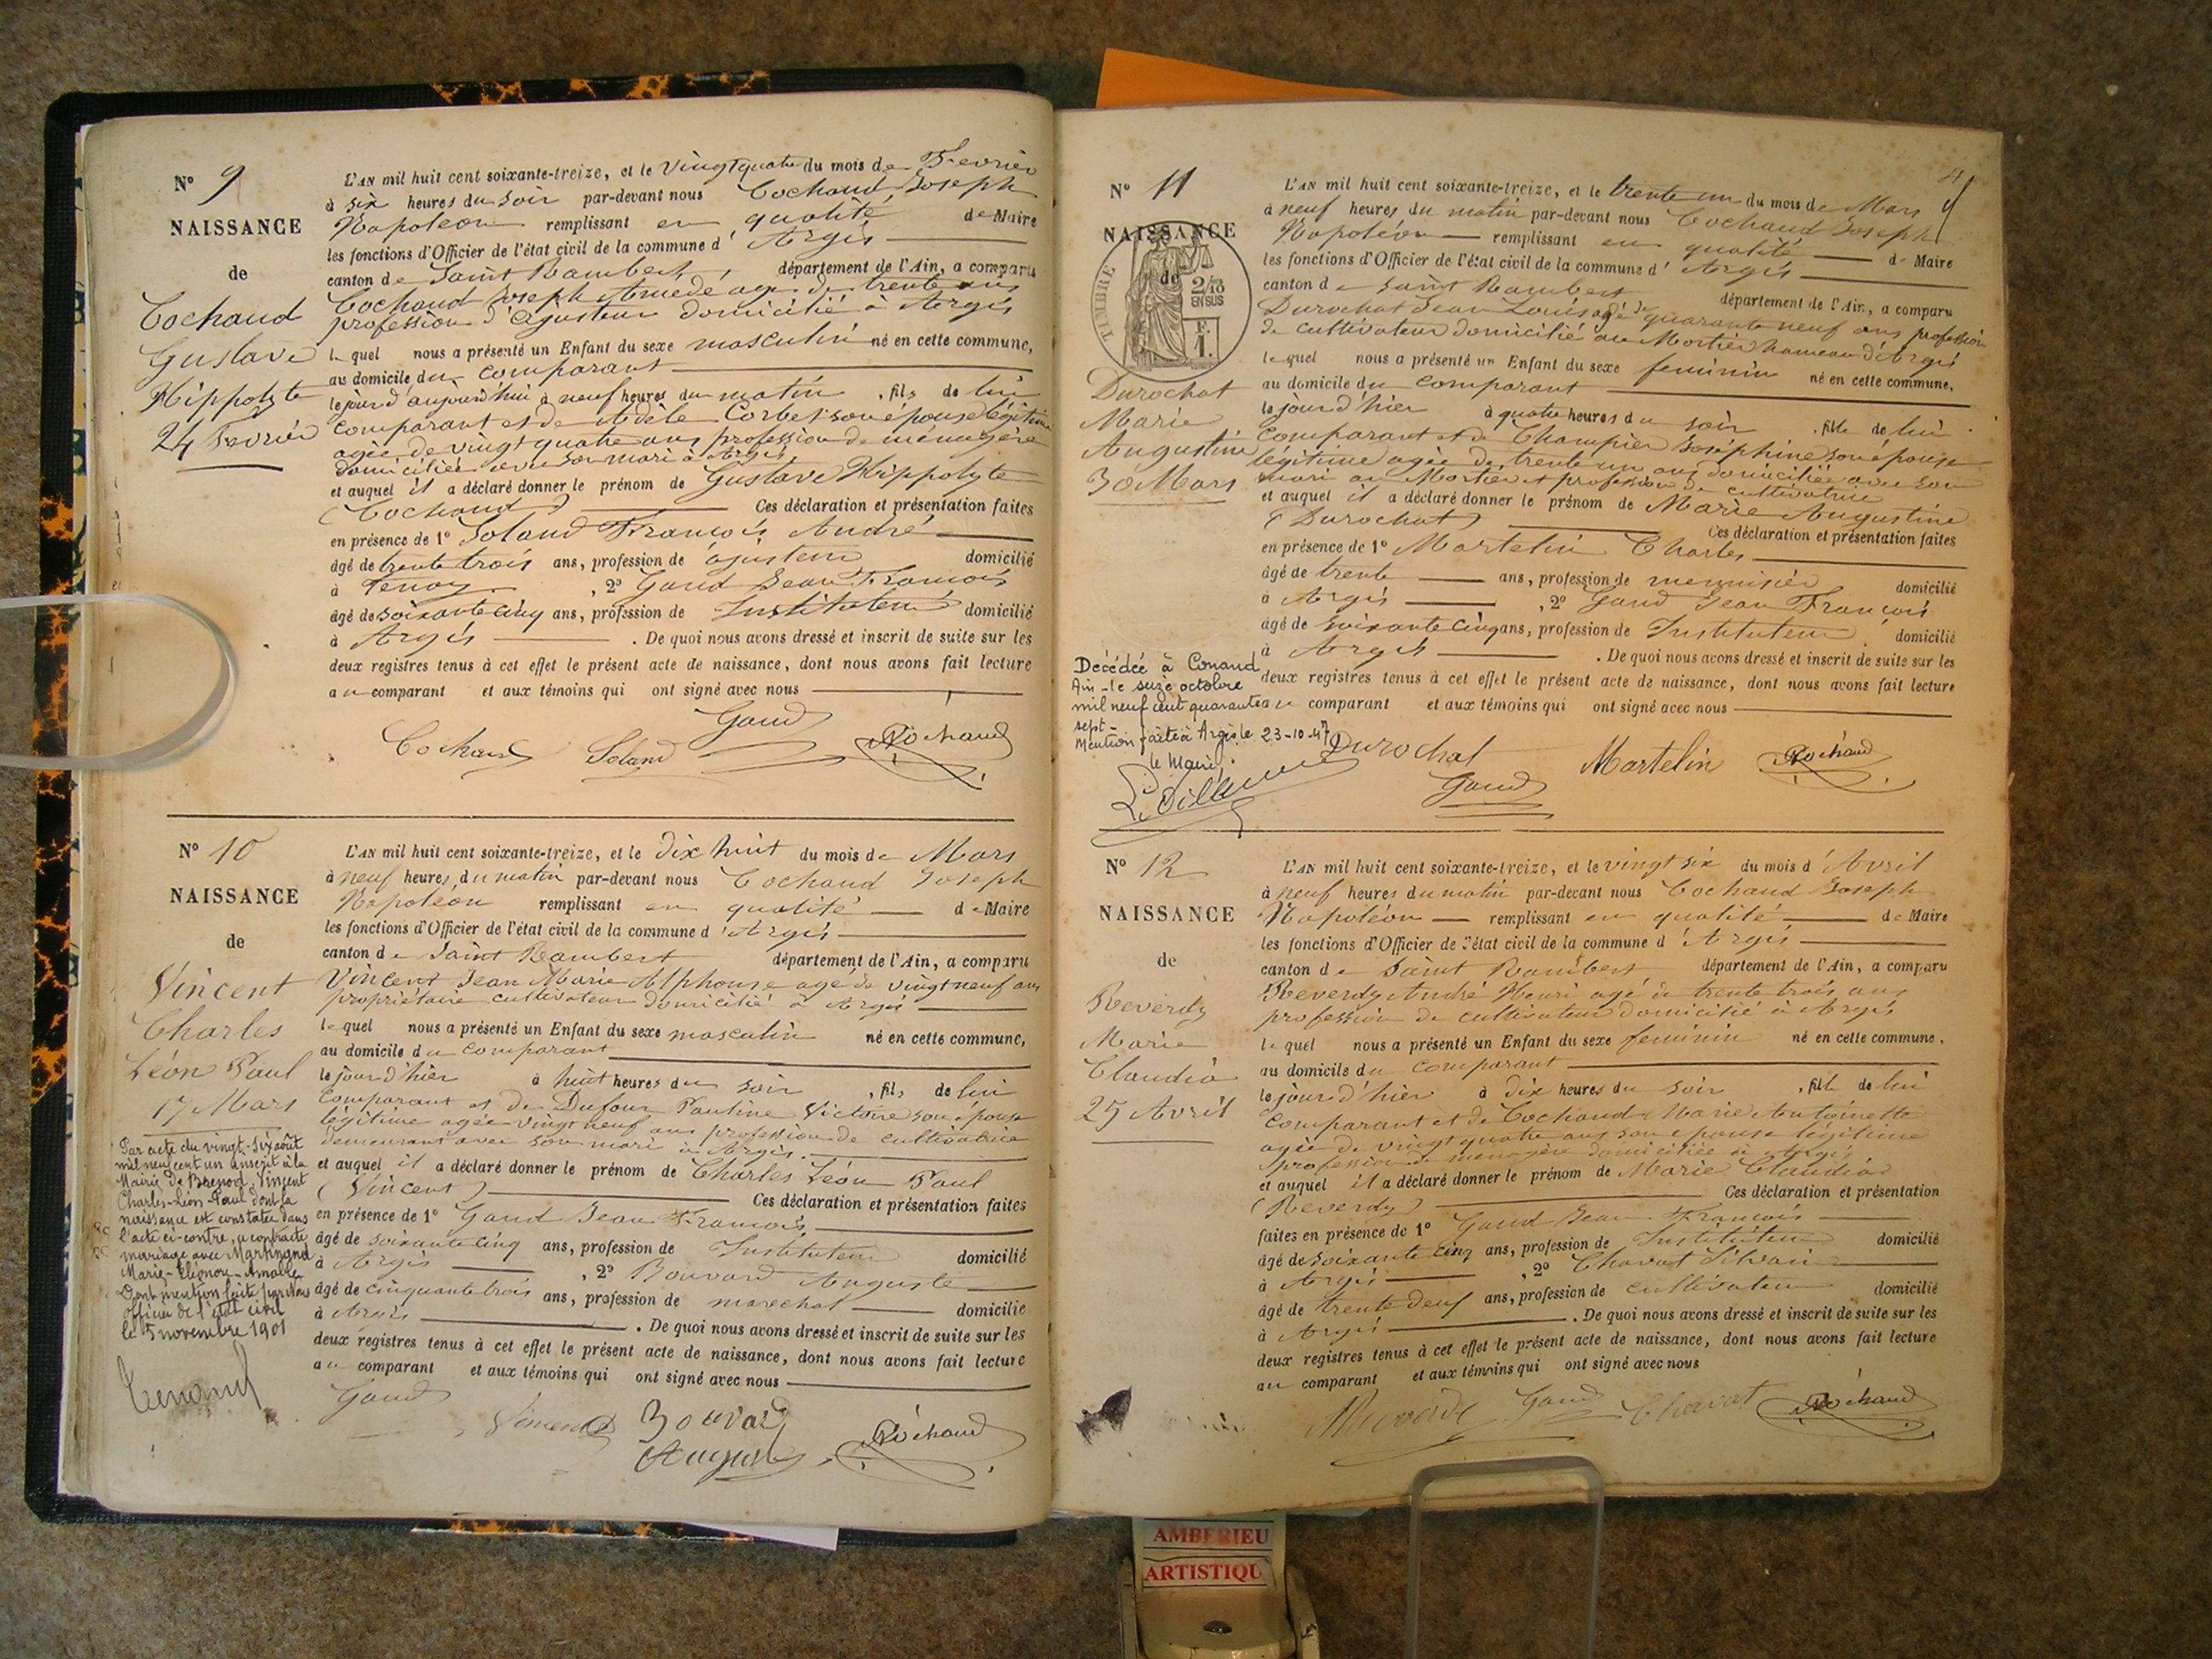 N° 9
NAISSANCE
de
Cochaud
Gustave
Hippolyte
24 Fevrier
L'AN mil huit cent soixante-treize, et le vingt quatre du mois de Fevrier
à six heures du soir par-devant nous Cochaud Joseph
Napoléon remplissant en qualité de Maire
les fonctions d'Officier de l'état civil de la commune d'Argis
canton de Saint Rambert, département de l'Ain, a comparu
Cochaud Joseph Amedé age de trente ans
profession d'ajusteur domicilié à Argis
lequel nous a présenté un Enfant du sexe masculin né en cette commune,
au domicile du comparant
le jour d'aujourd'hui à neuf heures du matin, fils de lui
comparant et de Adèle Corbet son épouse légitime
agée de vingt quatre ans profession de ménagère
domiciliée avec son mari à Argis.
et auquel il a déclaré donner le prénom de Gustave Hippolyte
(Cochaud) Ces déclaration et présentation faites
en présence de 1° Soland François André
âgé de trente trois ans, profession de ajusteur domicilié
à Tenay, 2° Gaud Jean François
âgé de soixante cinq ans, profession de Instituteur domicilié
à Argis. De quoi nous avons dressé et inscrit de suite sur les
deux registres tenus à cet effet le présent acte de naissance, dont nous avons fait lecture
au comparant et aux témoins qui ont signé avec nous
Gaud
Cochaud Soland Cochaud
N° 10
NAISSANCE
de
Vincent
Charles
Léon Paul
17 Mars
Par acte du vingt-six août
mil neuf cent un inscrit à la
Mairie de Brenod, Vincent
Charles-Léon-Paul dont la
naissance est constatée dans
l'acte ci-contre, a contracté
mariage avec Martinand
Marie-Eléonore-Amable
Dont mention faite par nous
officier de l'état civil
le 5 novembre 1901
L'AN mil huit cent soixante-treize, et le dix huit du mois de Mars
à neuf heures du matin par-devant nous Cochaud Joseph
Napoléon remplissant en qualité de Maire
les fonctions d'Officier de l'état civil de la commune d'Argis
canton de Saint Rambert département de l'Ain, a comparu
Vincent Jean Marie Alphonse agé de vingt neuf ans
propriétaire cultivateur domicilié à Argis
lequel nous a présenté un Enfant du sexe masculin né en cette commune,
au domicile du comparant
le jour d'hier à huit heures du soir, fils de lui
comparant et de Dufour Pauline Victoire son épouse
légitime agée vingt neuf ans profession de cultivatrice
demeurant avec son mari à Argis.
et auquel il a déclaré donner le prénom de Charles Léon Paul
(Vincent) Ces déclaration et présentation faites
en présence de 1° Gaud Jean François
âgé de soixante cinq ans, profession de Instituteur domicilié
à Argis, 2° Bouvard Auguste
âgé de cinquante trois ans, profession de marechal domicilié
à Argis. De quoi nous avons dressé et inscrit de suite sur les
deux registres tenus à cet effet le présent acte de naissance, dont nous avons fait lecture
au comparant et aux témoins qui ont signé avec nous
Gaud Vincent Bouvard
Auguste Cochaud
N° 11
NAISSANCE
de
TIMBRE
2/10
EN SUS
F.
1.
Durochat
Marie
Augustine
30 Mars
Décédée à Conand
Ain - le seize octobre
mil neuf cent quarante
sept -
Mention faite à Argis le 23-10-47
le Maire,
L'AN mil huit cent soixante-treize, et le trente un du mois de Mars
à neuf heures du matin par-devant nous Cochaud Joseph
Napoléon remplissant en qualité de Maire
les fonctions d'Officier de l'état civil de la commune d'Argis
canton de Saint Rambert département de l'Ain, a comparu
Durochat Jean Louis agé de quarante neuf ans profession
de cultivateur domicilié au Mortier hameau d'Argis
lequel nous a présenté un Enfant du sexe feminin né en cette commune,
au domicile du comparant
le jour d'hier à quatre heures du soir, fille de lui
comparant et de Champier Joséphine son épouse
légitime agée de trente un ans domiciliée avec son
mari au Mortier et profession de cultivatrice
et auquel il a déclaré donner le prénom de Marie Augustine
(Durochat) Ces déclaration et présentation faites
en présence de 1° Martelin Charles
âgé de trente ans, profession de menuisier domicilié
à Argis, 2° Gaud Jean François
âgé de soixante cinq ans, profession de Instituteur domicilié
à Argis. De quoi nous avons dressé et inscrit de suite sur les
deux registres tenus à cet effet le présent acte de naissance, dont nous avons fait lecture
au comparant et aux témoins qui ont signé avec nous
Durochat Martelin Cochaud
Gaud
N° 12
NAISSANCE
de
Reverdy
Marie
Claudia
25 Avril
L'AN mil huit cent soixante-treize, et le vingt six du mois d'Avril
à neuf heures du matin par-devant nous Cochaud Joseph
Napoléon remplissant en qualité de Maire
les fonctions d'Officier de l'état civil de la commune d'Argis
canton de Saint Rambert département de l'Ain, a comparu
Reverdy André Henri agé de trente trois ans
profession de cultivateur domicilié à Argis
lequel nous a présenté un Enfant du sexe feminin né en cette commune,
au domicile du comparant
le jour d'hier à dix heures du soir, fille de lui
comparant et de Cochaud Marie Antoinette
agée de vingt quatre ans son épouse légitime
profession de menagère domiciliée à Argis
et auquel il a déclaré donner le prénom de Marie Claudia
(Reverdy) Ces déclaration et présentation
faites en présence de 1° Gaud Jean François
âgé de soixante cinq ans, profession de Instituteur domicilié
à Argis, 2° Chavat Silvain
âgé de trente deux ans, profession de cultivateur domicilié
à Argis. De quoi nous avons dressé et inscrit de suite sur les
deux registres tenus à cet effet le présent acte de naissance, dont nous avons fait lecture
au comparant et aux témoins qui ont signé avec nous
Reverdy Gaud Chavat Cochaud
AMBERIEU
ARTISTIQU